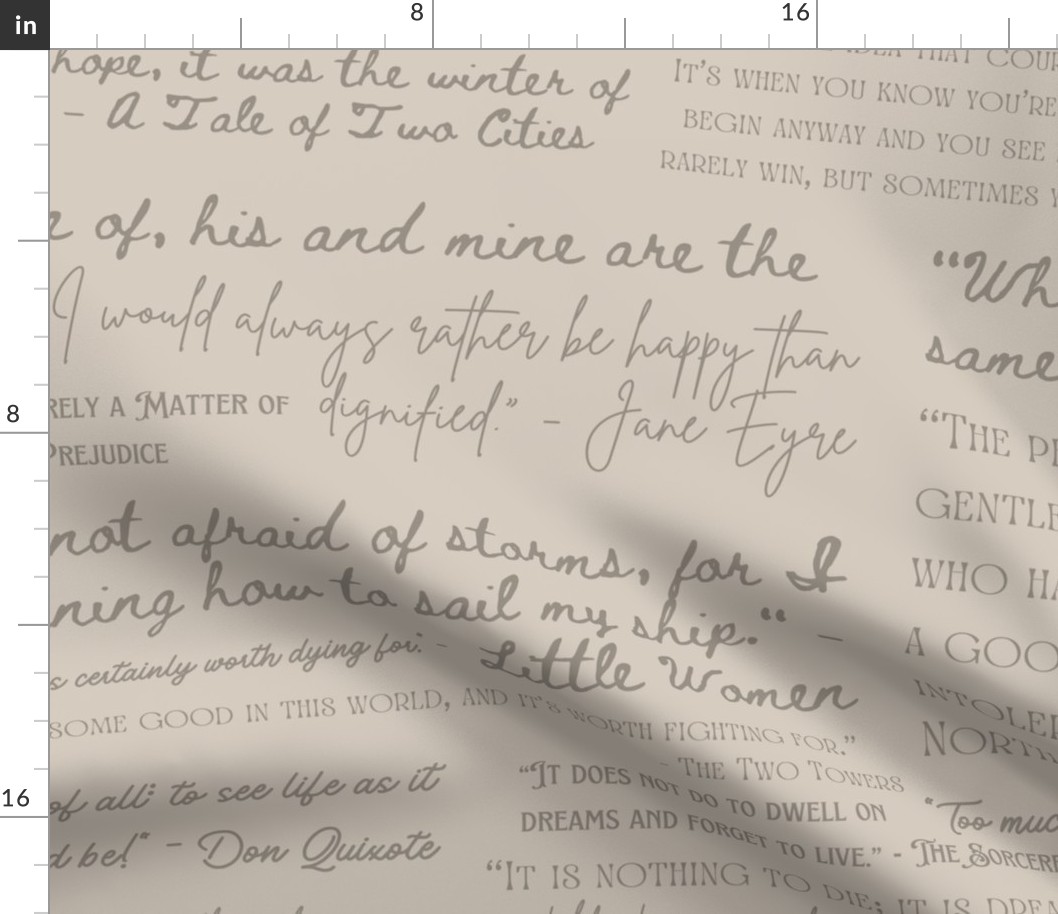 in
8
16
8
16
hope, it was the winter of
- A Tale of Two Cities
IDEA THAT COUR
IT'S WHEN YOU KNOW YOU'RE
BEGIN ANYWAY AND YOU SEE
RARELY WIN, BUT SOMETIMES Y
of, his and mine are the
I would always rather be happy than
dignified.” - Jane Eyre
RELY A MATTER OF
PREJUDICE
not afraid of storms, for I
ning how to sail my ship.“ -
Little Women
s certainly worth dying for.“ -
SOME GOOD IN THIS WORLD, AND IT'S WORTH FIGHTING FOR.”
- THE TWO TOWERS
of all: to see life as it
d be!“ - Don Quixote
“IT DOES NOT DO TO DWELL ON
DREAMS AND FORGET TO LIVE.” - THE SORCERE
“IT IS NOTHING TO DIE; IT IS DREA
“Wh
same
“THE PE
GENTLE
WHO HA
A GOO
INTOLER
NORTH
“Too muc